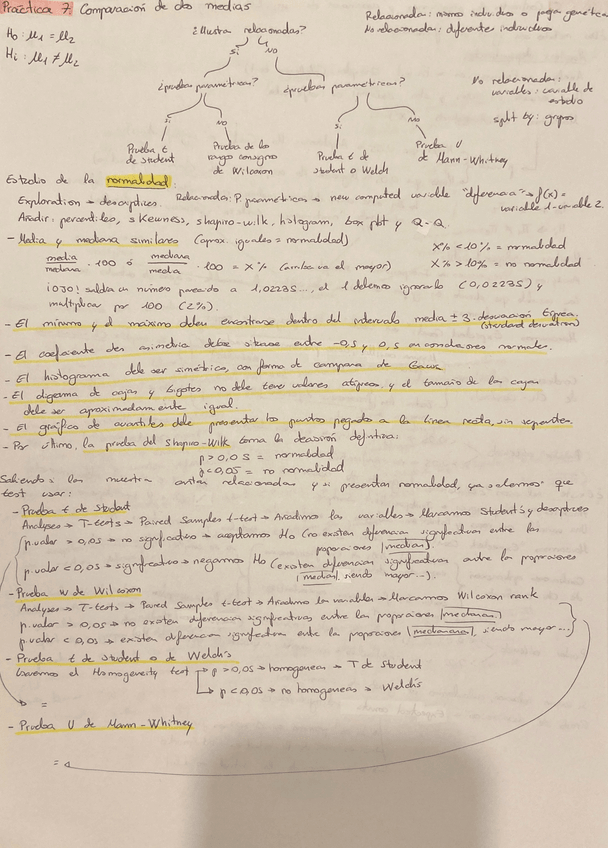 Práctica 7. Comparación de dos medias
Relacionada: mismo individuo o pareja genética
No relacionada: diferentes individuos
H₀: μ₁ = μ₂
H₁: μ₁ ≠ μ₂
¿Muestra relacionadas?
Sí No
¿pruebas paramétricas? ¿pruebas paramétricas?
No relacionada:
variables: variable de
estudio
split by: grupos
Sí No Sí No
Prueba t de student
Prueba de los rangos consigno de Wilcoxon
Prueba t de student o Welch
Prueba U de Mann-Whitney
Estudio de la normalidad:
Exploration → descriptives. Relacionada: P. paramétricas → new computed variable "diferencia" → f(x) = variable 1 - variable 2.
Añadir: percentiles, skewness, shapiro-wilk, histogram, box plot y Q-Q.
- Media y mediana similares (aprox. iguales = normalidad)
media/mediana · 100 ó mediana/media · 100 = X% (arriba va el mayor)
X% < 10% = normalidad
X% > 10% = no normalidad
¡OJO! saldría un número parecido a 1,02235..., el 1 debemos ignorarlo (0,02235) y
multiplicar por 100 (2%).
- El mínimo y el máximo deben encontrarse dentro del intervalo media ± 3 · desviación típica.
(standard deviation)
- El coeficiente de asimetría debe situarse entre -0,5 y 0,5 en condiciones normales.
- El histograma debe ser simétrico, con forma de campana de Gauss
- El digrama de cajas y bigotes no debe tener valores atípicos, y el tamaño de las cajas
debe ser aproximadamente igual.
- El gráfico de cuantiles debe presentar los puntos pegado a la linea recta, sin serpenteo.
- Por último, la prueba del Shapiro-Wilk toma la decisión definitiva:
p > 0,05 = normalidad
p < 0,05 = no normalidad
Sabiendo si las muestra están relacionadas y si presentan normalidad, ya sabemos que
test usar:
- Prueba t de Student
Analyses → T-tests → Paired Samples t-test → Añadimos las variables → Marcamos Student's y descriptives
p.valor > 0,05 → no significativo → aceptamos H₀ (no existen diferencias significativas entre las
proporciones / medias)
p.valor < 0,05 → significativo → negamos H₀ (existen diferencias significativas entre la proporciones
/ medias, siendo mayor...).
- Prueba W de Wilcoxon
Analyses → T-tests → Paired Samples t-test → Añadimos la variables → Marcamos Wilcoxon rank
p.valor > 0,05 → no existen diferencias significativas entre las proporciones / medianas
p.valor < 0,05 → existen diferencia significativas entre la proporciones / medianas, siendo mayor...
- Prueba t de student o de Welch's
Hacemos el Homogeneity test → p > 0,05 → homogeneas → T de Student
→ p < 0,05 → no homogeneas → Welch's
=
- Prueba U de Mann-Whitney
=